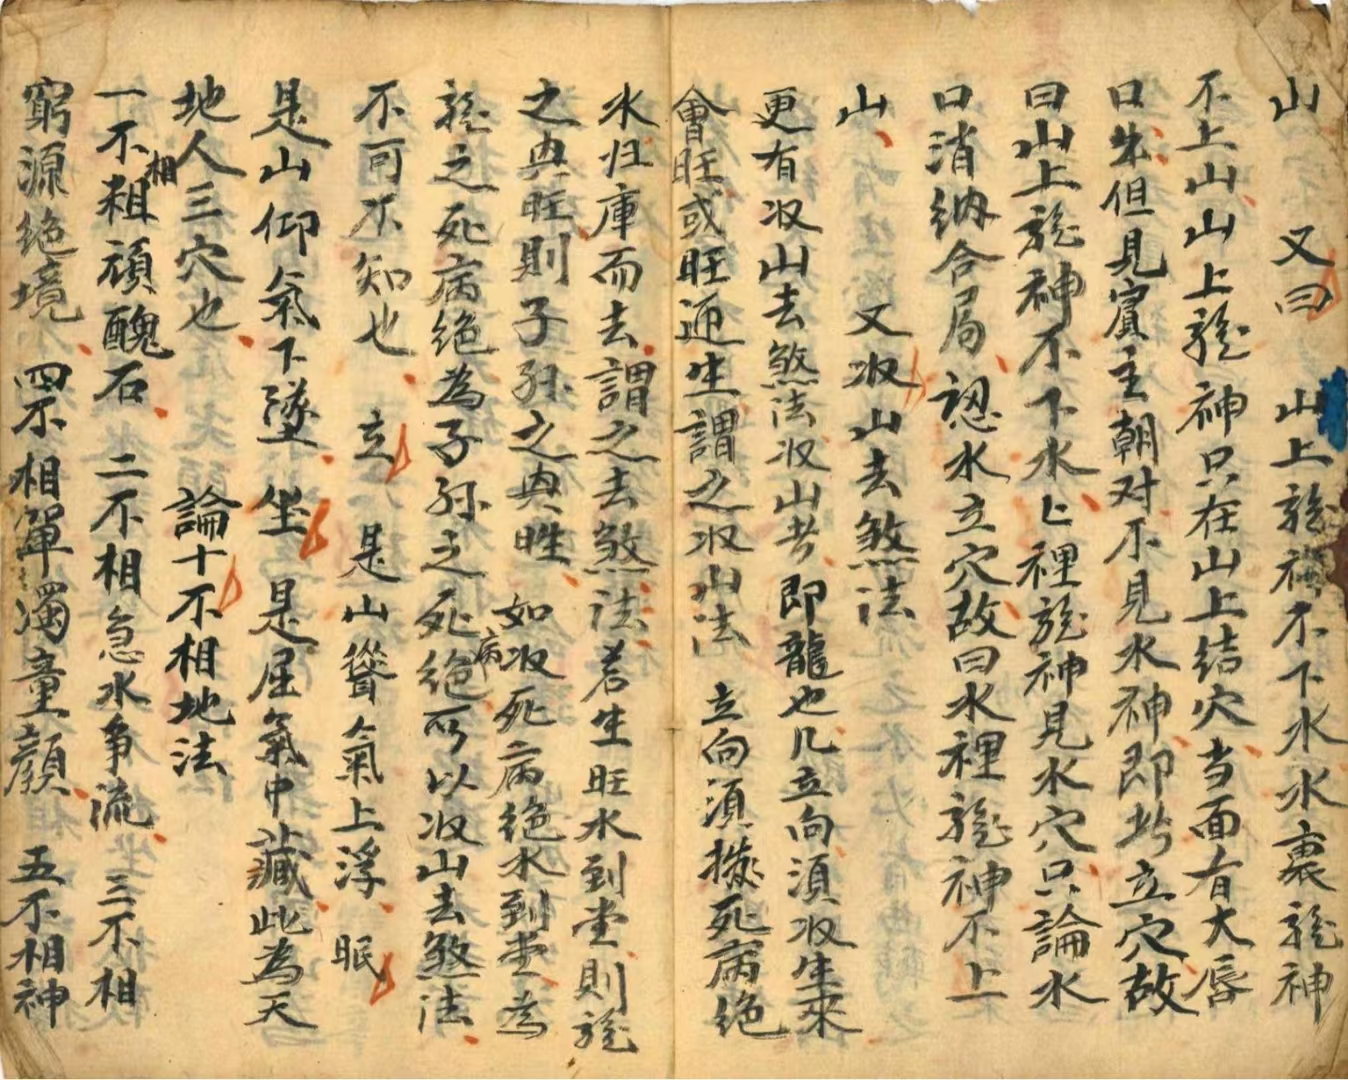 山　又曰　山上龍神不下水水裏龍神
不上山山上龍神只在山上結穴当面有大唇
口朱但見賓主朝对不見水神即此立穴故
曰山上龍神不下水匕裡龍神見水穴只論水
口消納合局　認水立穴故曰水裡龍神不上
山　又収山去煞法
更有収山去煞法収山者即龍也凡立向須收生來
會旺或旺迊生謂之収山法　立向須撥死病絕
水归庫而去謂之去煞法若生旺水到堂則龍
之興旺則子孫之興旺　如収死病絕水到堂為
龍之死病絕為子孫之死病絕所以収山去煞法
不可不知也　立是山聳氣上浮　眠
是山仰氣下墜　坐是屈氣中藏此為天
地人三穴也　論十不相地法
一不相粗頑醜石　二不相急水争流　三不相
窮源绝境　四不相單獨童顔　五不相神